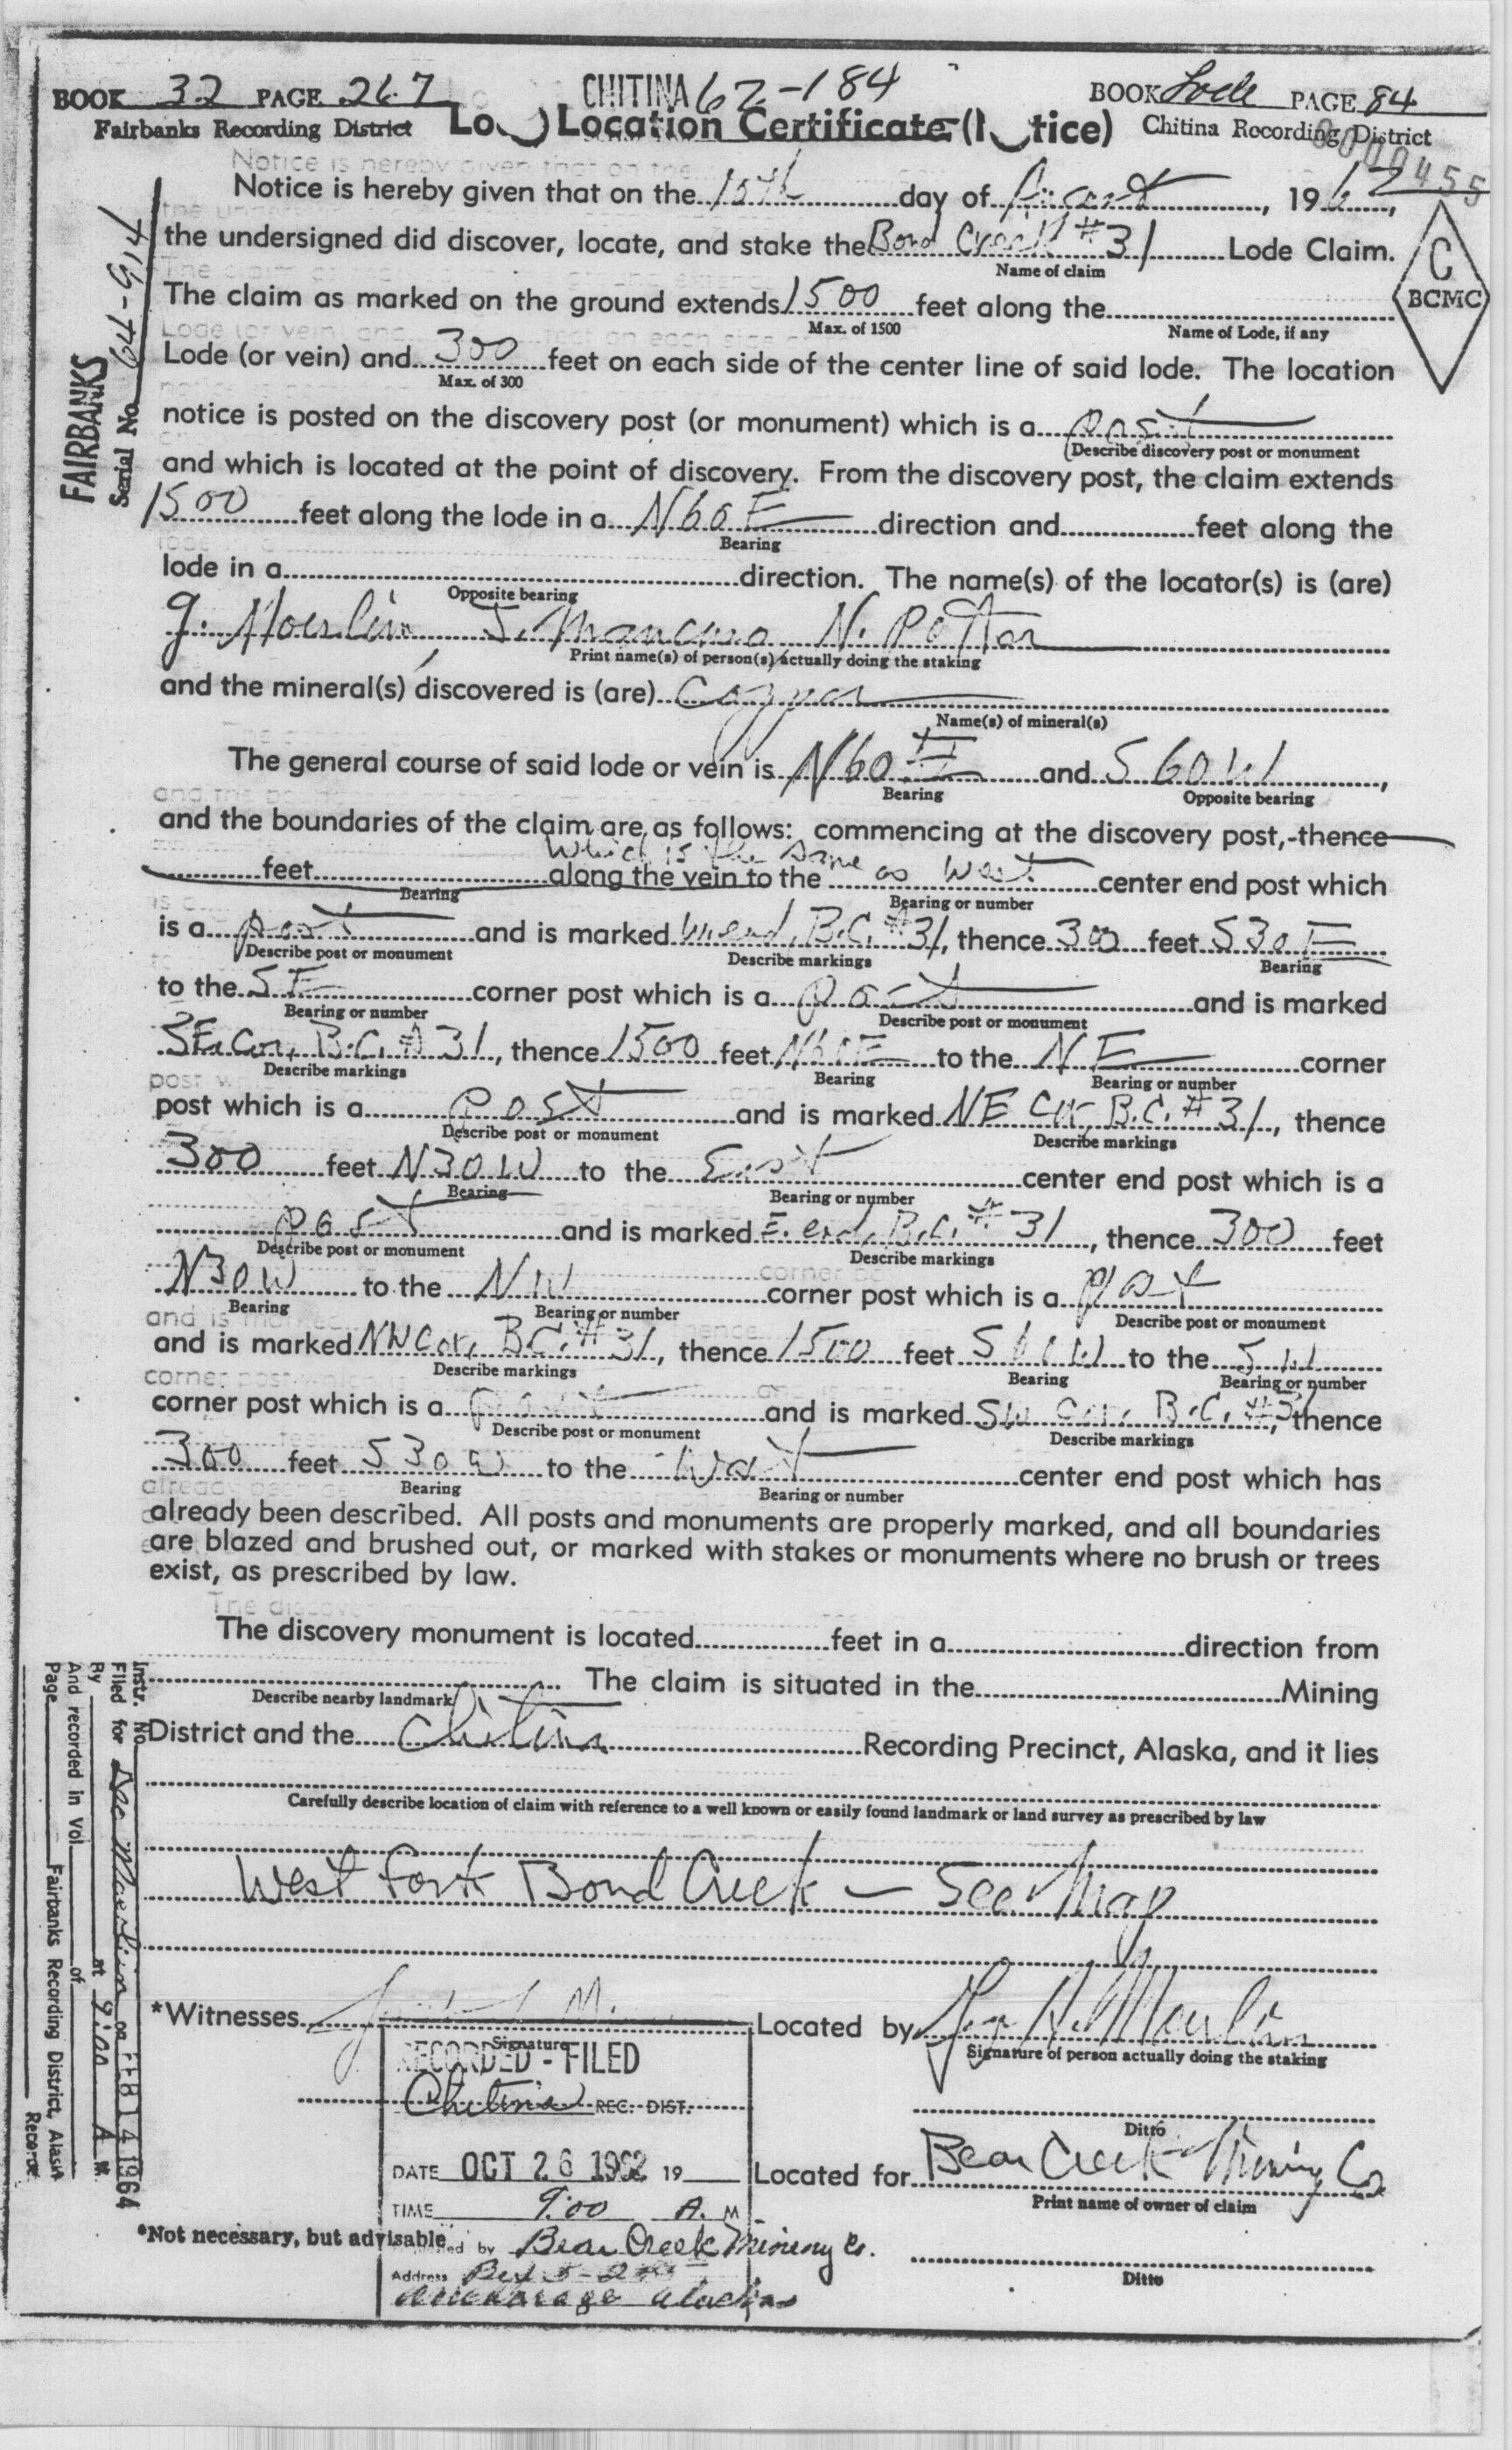 BOOK 32 PAGE 267
Fairbanks Recording District
CHITINA 62-184
BOOK Lode PAGE 84
Chitina Recording District
Location Certificate (Notice)
0000455
Notice is hereby given that on the 15th day of August, 1962,
the undersigned did discover, locate, and stake the Bond Creek #31 Lode Claim.
Name of claim
C
BCMC
The claim as marked on the ground extends 1500 feet along the
Max. of 1500 Name of Lode, if any
Lode (or vein) and 300 feet on each side of the center line of said lode. The location
Max. of 300
notice is posted on the discovery post (or monument) which is a post
Describe discovery post or monument
and which is located at the point of discovery. From the discovery post, the claim extends
1500 feet along the lode in a N60E direction and feet along the
Bearing
lode in a direction. The name(s) of the locator(s) is (are)
Opposite bearing
G. Moerlein, J. Mancino N. Potter
Print name(s) of person(s) actually doing the staking
and the mineral(s) discovered is (are) Copper
Name(s) of mineral(s)
The general course of said lode or vein is N60E and S60W,
Bearing Opposite bearing
and the boundaries of the claim are as follows: commencing at the discovery post, thence
which is the same
feet along the vein to the as West center end post which
Bearing Bearing or number
is a post and is marked W. end, B.C. #31, thence 300 feet S30E
Describe post or monument Describe markings Bearing
to the SE corner post which is a post and is marked
Bearing or number Describe post or monument
SE Cor, B.C. #31, thence 1500 feet N60E to the NE corner
Describe markings Bearing Bearing or number
post which is a post and is marked NE Cor, B.C. #31, thence
Describe post or monument Describe markings
300 feet N30W to the East center end post which is a
Bearing Bearing or number
post and is marked E. end, B.C. #31, thence 300 feet
Describe post or monument Describe markings
N30W to the NW corner post which is a post
Bearing Bearing or number Describe post or monument
and is marked NW Cor, B.C. #31, thence 1500 feet S60W to the SW
Describe markings Bearing Bearing or number
corner post which is a post and is marked SW Cor. B.C. #31, thence
Describe post or monument Describe markings
300 feet S30W to the West center end post which has
Bearing Bearing or number
already been described. All posts and monuments are properly marked, and all boundaries
are blazed and brushed out, or marked with stakes or monuments where no brush or trees
exist, as prescribed by law.
The discovery monument is located feet in a direction from
The claim is situated in the Mining
Describe nearby landmark
District and the Chitina Recording Precinct, Alaska, and it lies
Carefully describe location of claim with reference to a well known or easily found landmark or land survey as prescribed by law
West Fork Bond Creek - See Map
*Witnesses
Signature
Located by
Signature of person actually doing the staking
RECORDED - FILED
Chitina REC. DIST.
Ditto
DATE OCT 26 1962 19
Located for Bear Creek Mining Co
Print name of owner of claim
TIME 9:00 A. M
*Not necessary, but advisable
by Bear Creek Mining Co.
Ditto
Address
Anchorage Alaska
FAIRBANKS
Serial No. 64-914
Instr. No
Filed for Geo Moerlein on FEB 14 1964
By at 9:00 A M.
And recorded in Vol. of
Page Fairbanks Recording District, Alaska